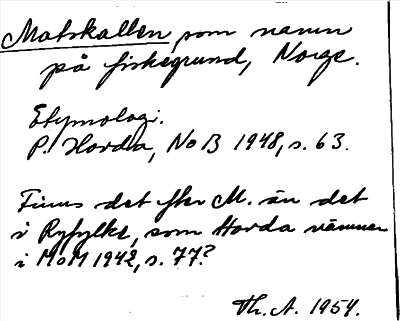 Matskallen, som namn
på fiskegrund, Norge.
Etymologi.
P. Hovda, NoB 1948, s. 63.
Finns det fler M. än det
i Ryfylke, som Hovda nämner
i MoM 1942, s. 77?
Th. A. 1954.